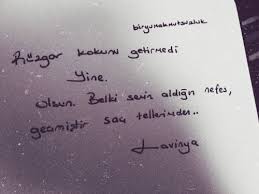 biryumakmutsuzluk
Rüzgar kokunu getirmedi
Yine.
Olsun. Belki senin aldığın nefes,
geçmiştir saç tellerimden..
Lavinya